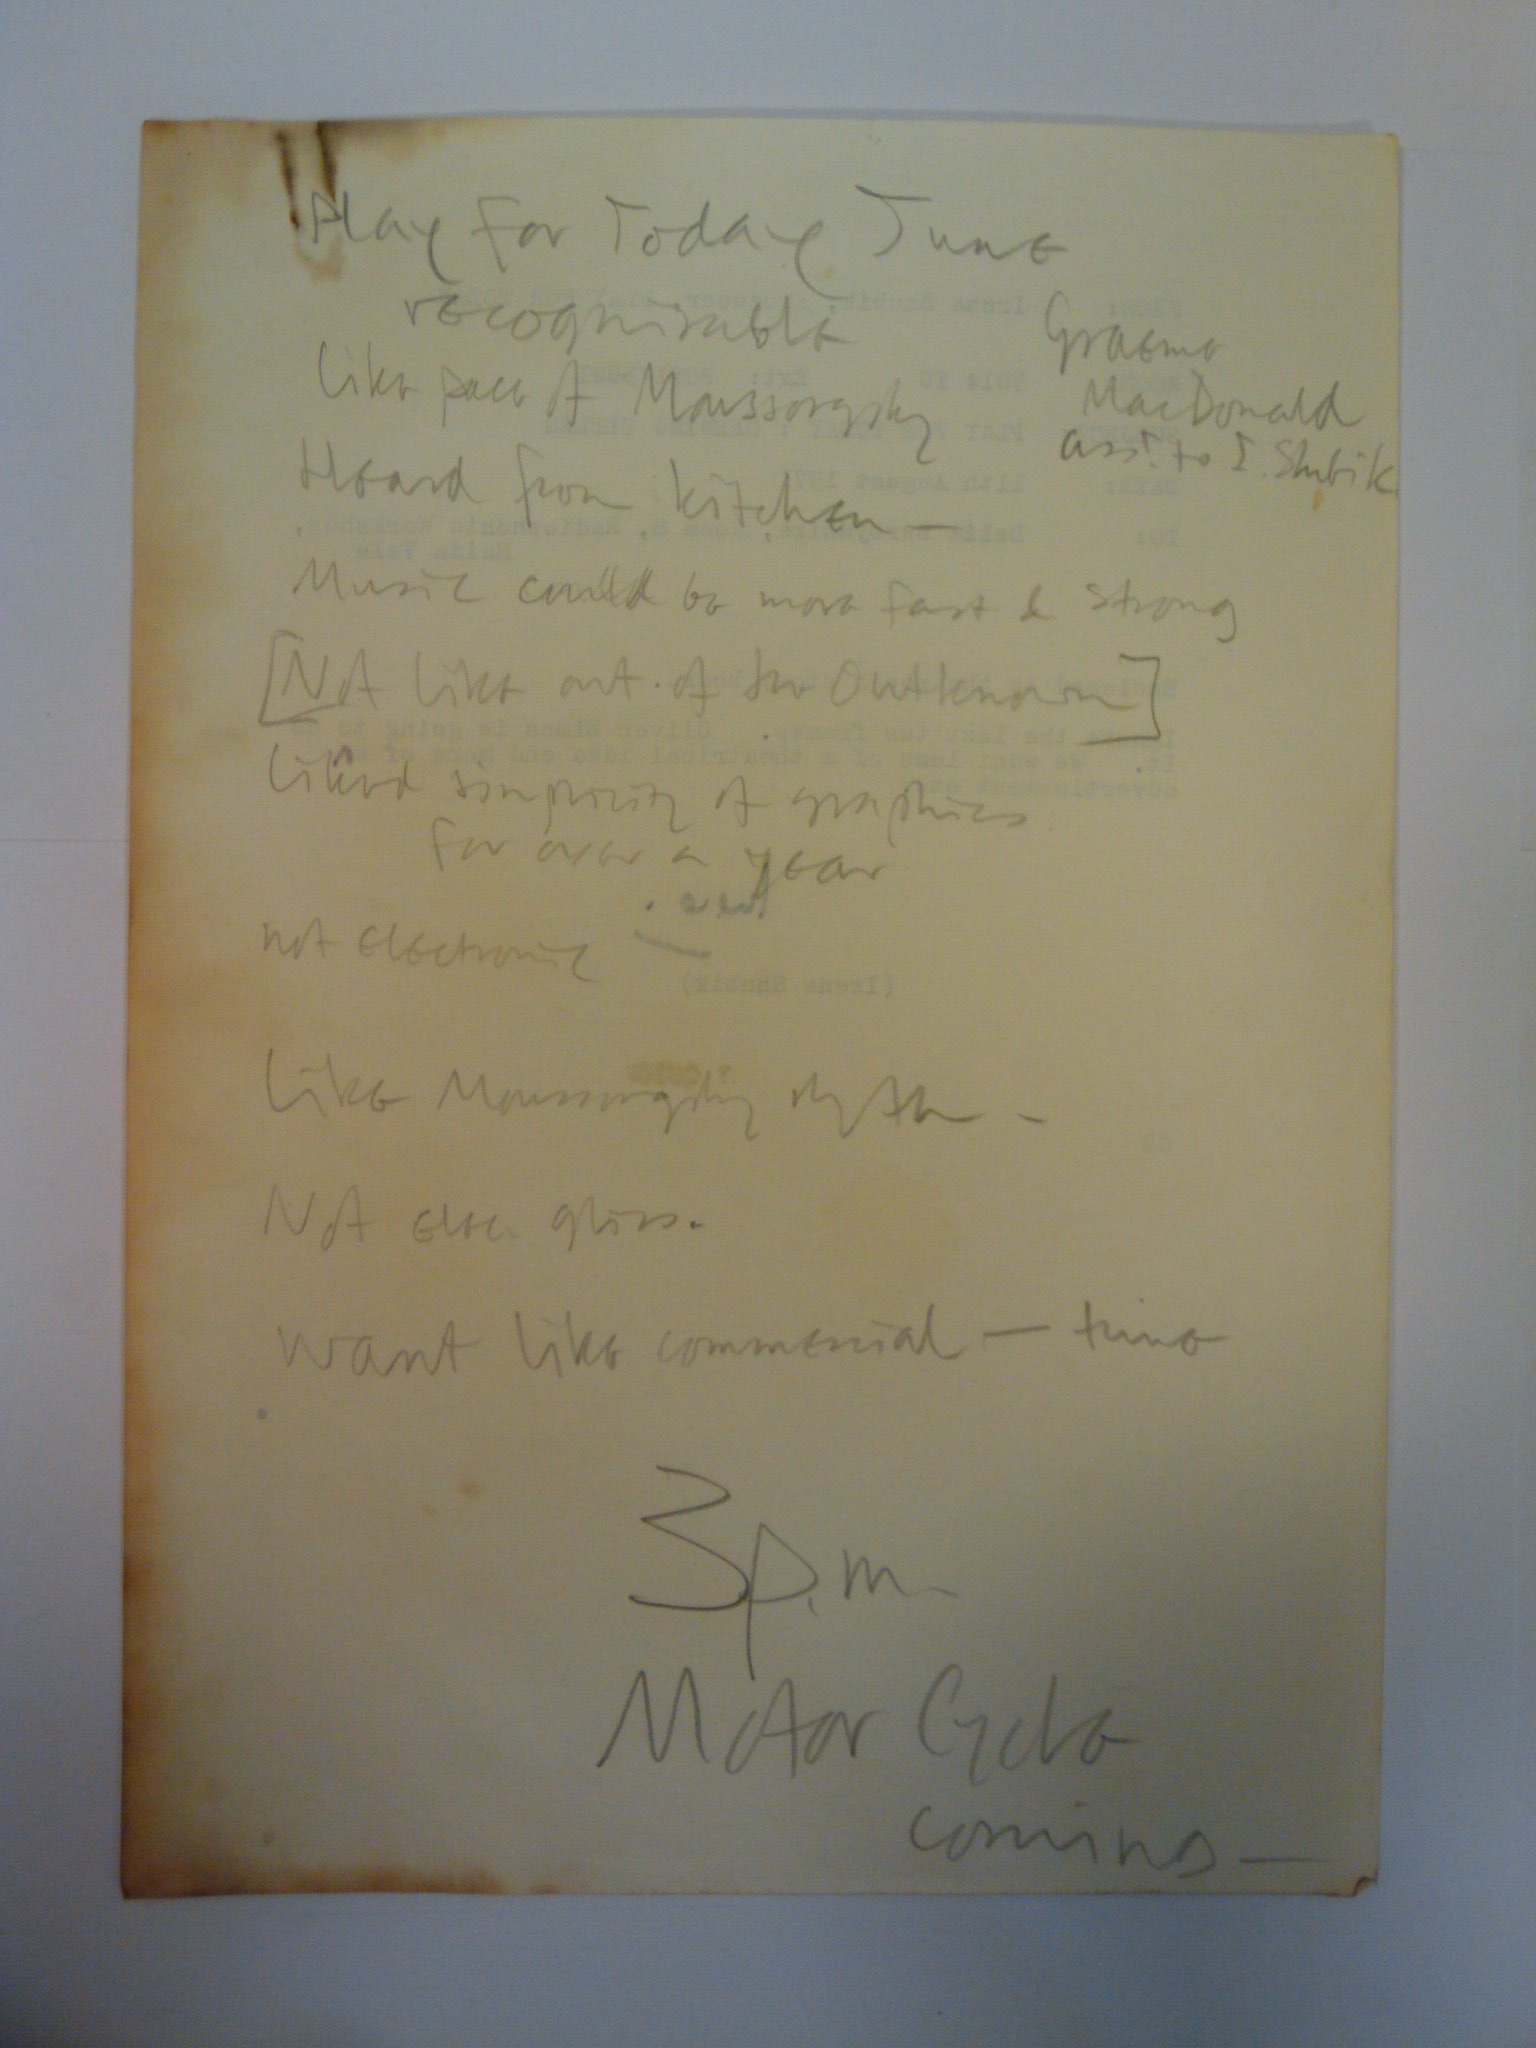 Play for Today Tune
recognisable
Graeme
like pace of Moussorgsky
MacDonald
asst. to I. Shubik
Heard from kitchen —
Music could be more fast & strong
[Not like out of the Outknown]
Liked simplicity of graphics
for over a year
not electronic
like Moussorgsky rythm -
Not elec. gliss.
Want like commercial — tune
3p.m.
Motor Cycle
coming —